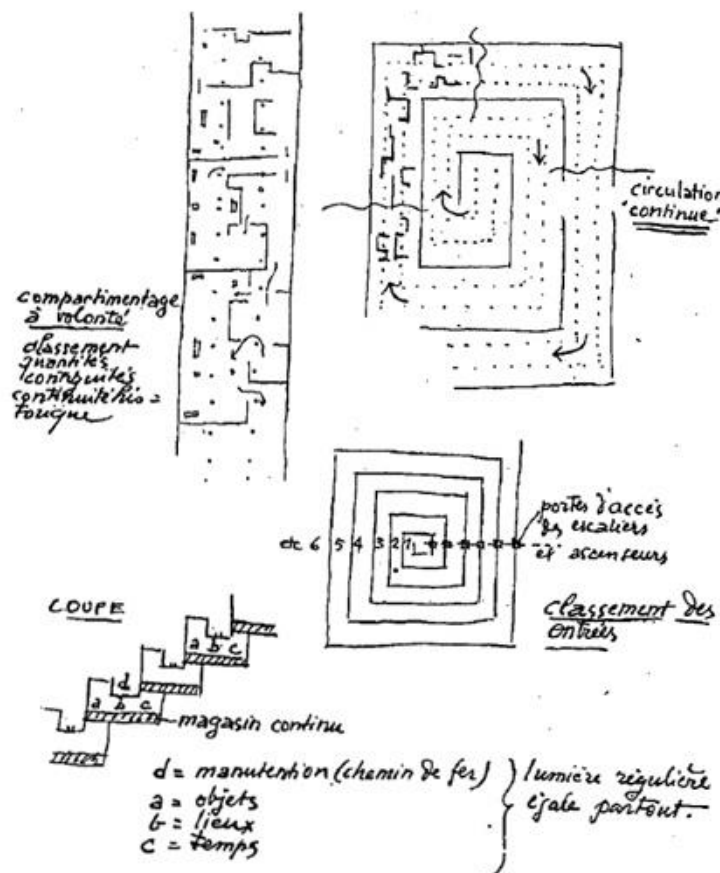 circulation
"continue"
compartimentage
à volonté
classement
quantités
continuités
continuité his=
torique
portes d'accès
des escaliers
et ascenseurs
etc 6 5 4 3 2 1
classement des
entrées
COUPE
a b c
d
a b c
magasin continu
d = manutention (chemin de fer)
a = objets
b = lieux
c = temps
lumière régulière
égale partout.